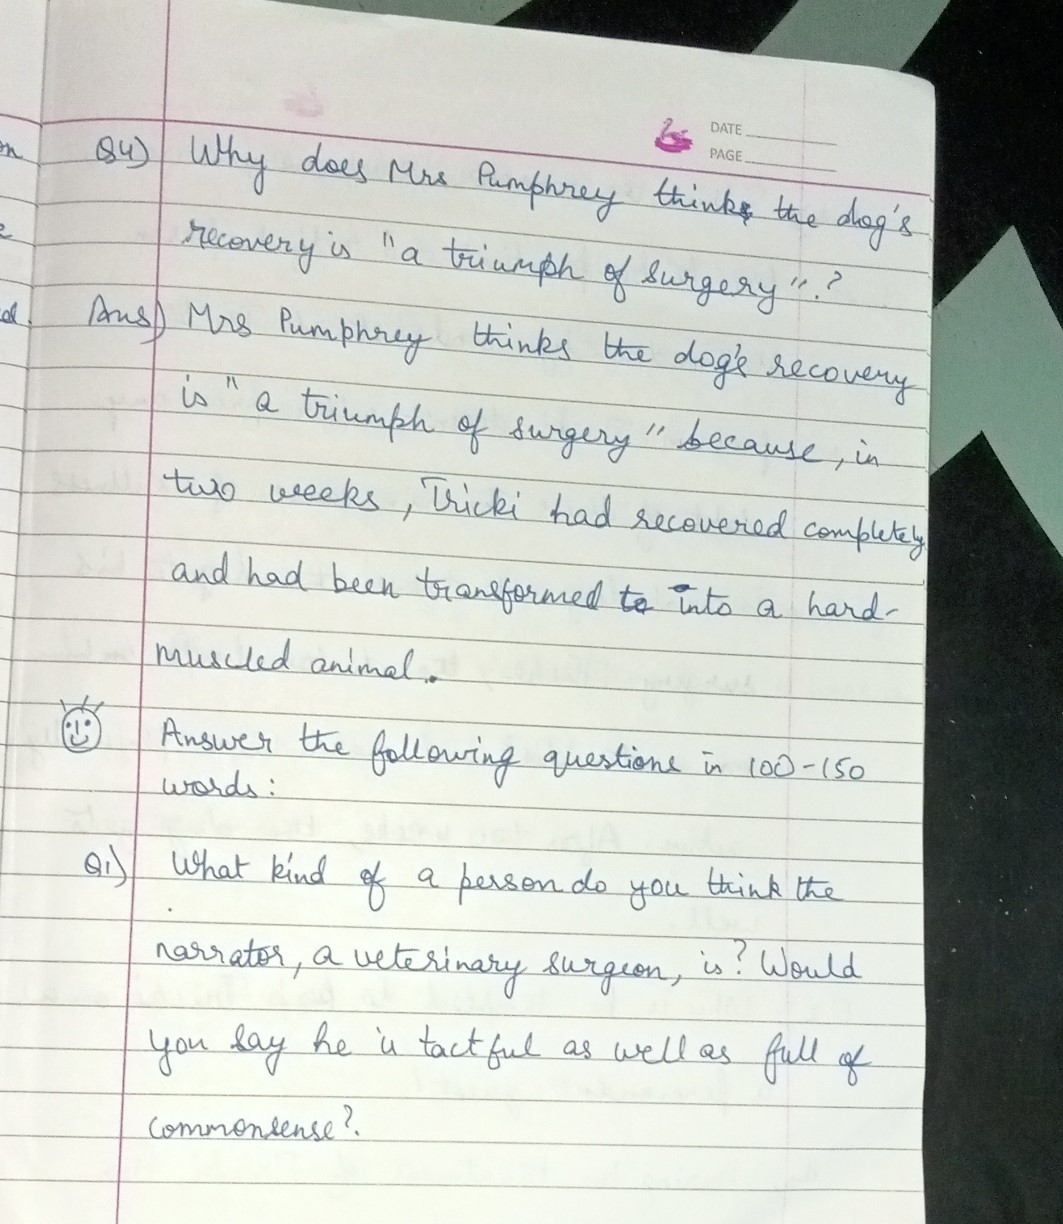 DATE
PAGE
Q4) Why does Mrs Pumphrey think the dog's
recovery is "a triumph of surgery".?
Ans) Mrs Pumphrey thinks the dog's recovery
is "a triumph of surgery" because, in
two weeks, Tricki had recovered completely
and had been transformed to into a hard-
muscled animal.
Answer the following questions in 100-150
words:
Q1) What kind of a person do you think the
narrator, a veterinary surgeon, is? Would
you say he is tactful as well as full of
commonsense?.